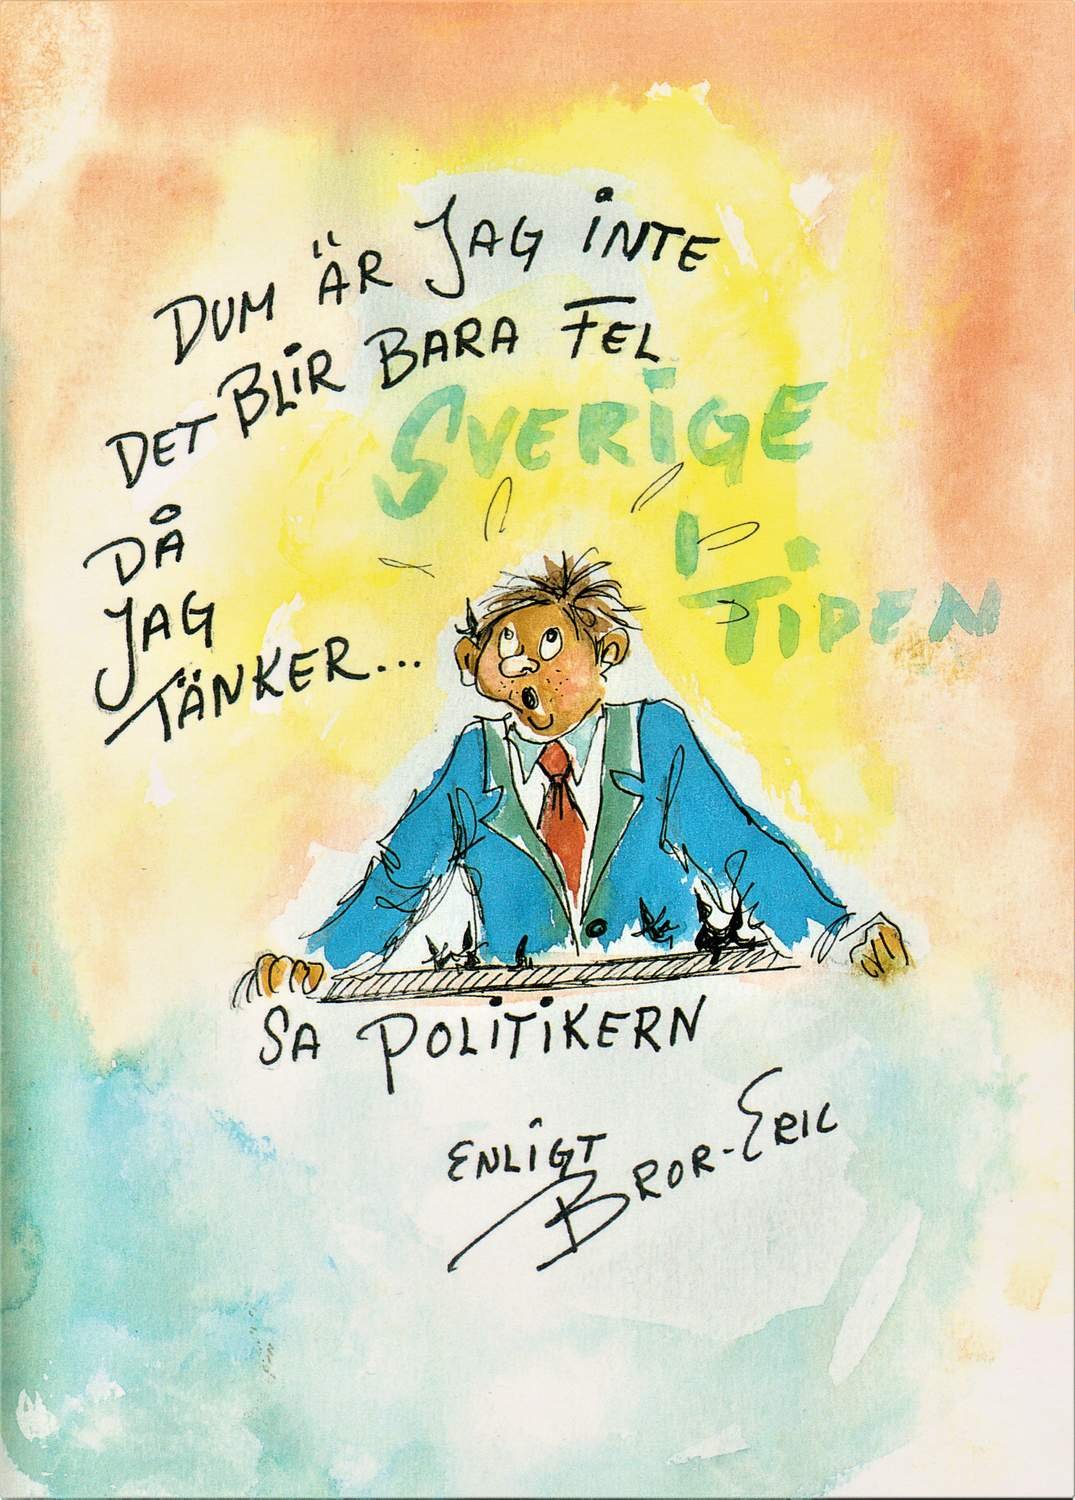 DUM ÄR JAG INTE
DET BLIR BARA FEL
DÅ
JAG
TÄNKER...
SVERIGE
I
TIDEN
SA POLITIKERN
ENLIGT
BROR-ERIC